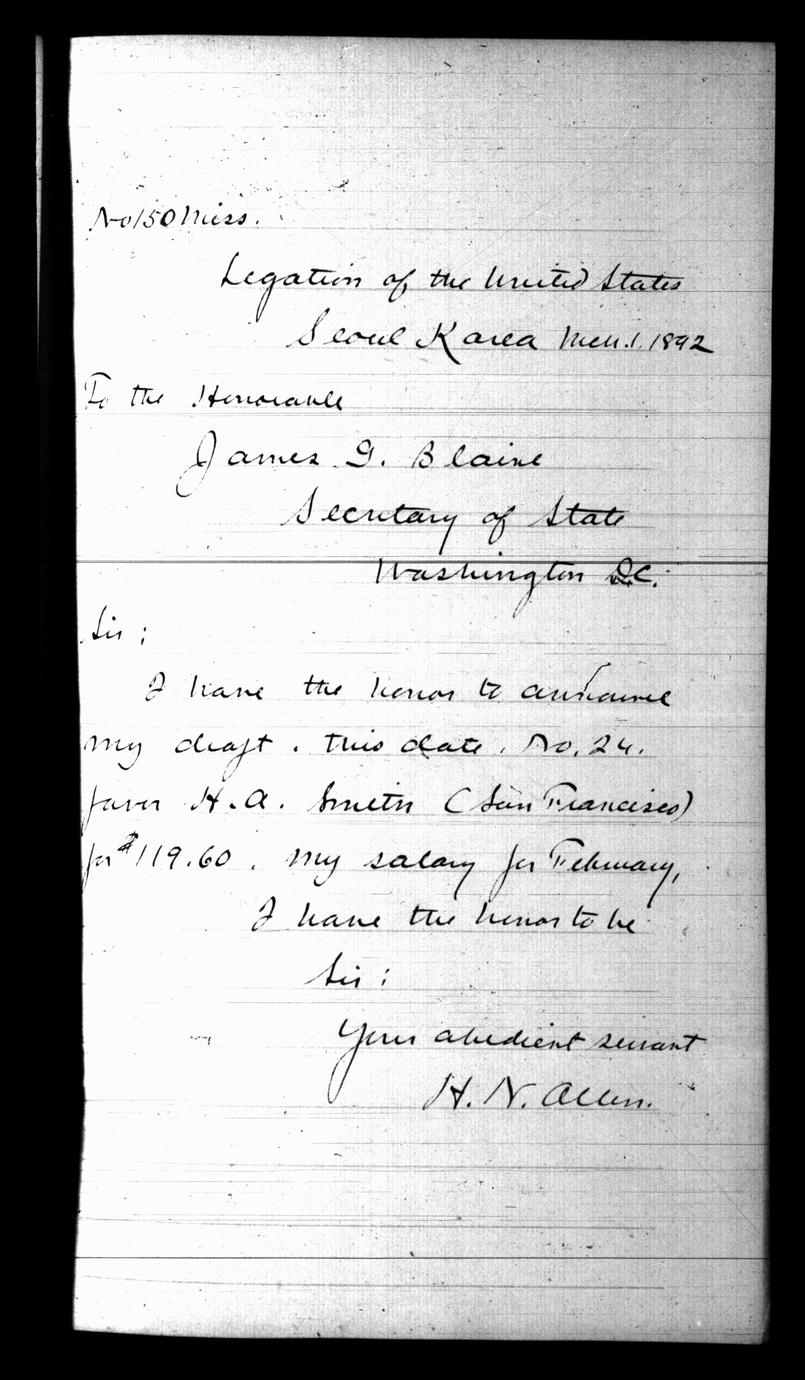 No 150 Miss.
Legation of the United States
Seoul Korea Mch. 1. 1892
To the Honorable
James G. Blaine
Secretary of State
Washington D.C.
Sir ;
I have the honor to announce
my draft . this date . No. 24.
favor H. A. Smith (San Francisco)
for $119.60 . my salary for February,
I have the honor to be
Sir :
Your obedient servant
H. N. Allen.